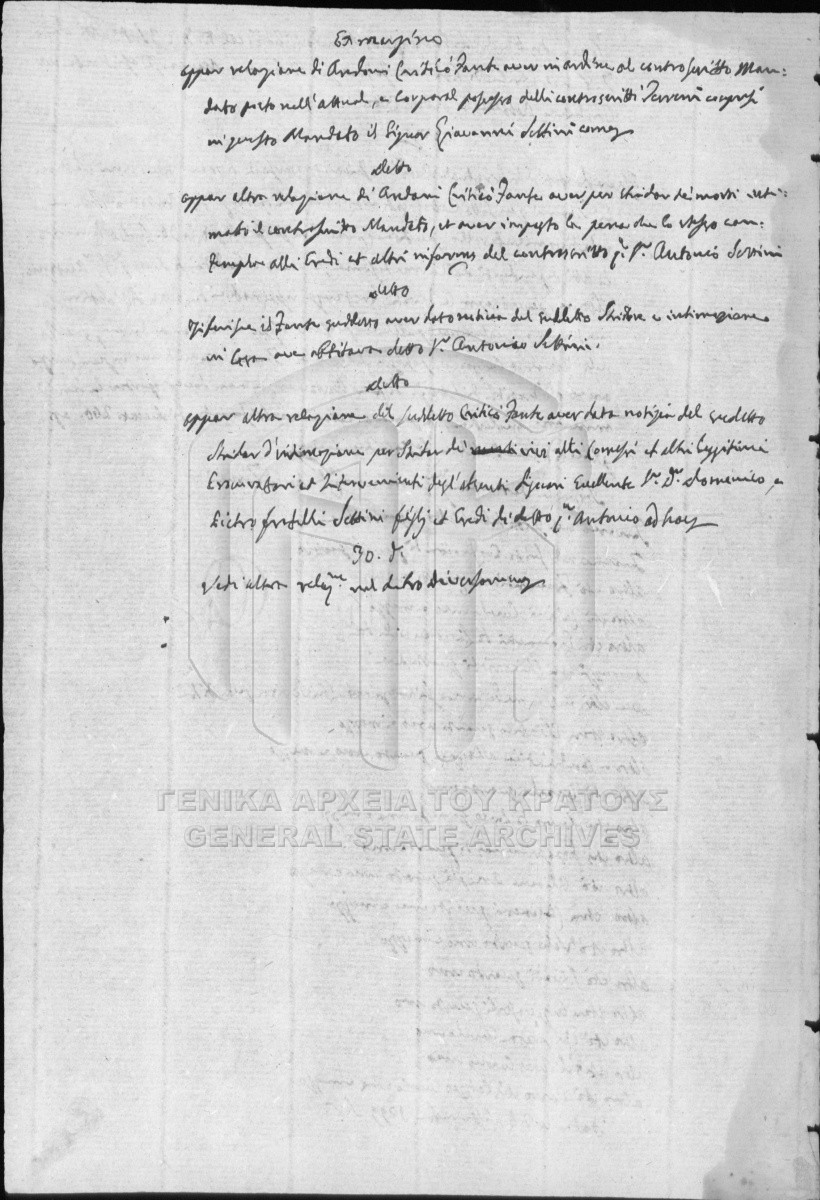 Ex margine
appar relazione di Andoni Criticò Fante aver in ordine al controscritto Man-
dato posto nell'attual, e corporal possesso delli controscritti Terreni compresi
in questo Mandato il Signor Giovanni Settini
detto
appar altra relazione di Andoni Criticò Fante aver per stridor dei morti inti-
mato il controscritto Mandato, et aver imposto la pena che lo stesso con-
templa alli Eredi et altri del controscritto q. Sr. Antonio Settini
detto
Riferisce il Fante suddetto aver dato notizia del suddetto Stridore e intimazione
in Casa ove abbitava detto Sr. Antonio Settini.
detto
appar altra relazione del suddetto Criticò Fante aver data notizia del suddetto
stridor d'intimazione per Stridor dei vivi alli Comessi et altri Legitimi
et Intervenienti degl'absenti Signori Eccellente Sr. Dr. Domenico, e
Pietro fratelli Settini figlj et Eredi di detto q. Antonio ad hoc
30. d.
Vedi altra relazne. nel Libro Diversorum
ΓΕΝΙΚΑ ΑΡΧΕΙΑ ΤΟΥ ΚΡΑΤΟΥΣ
GENERAL STATE ARCHIVES